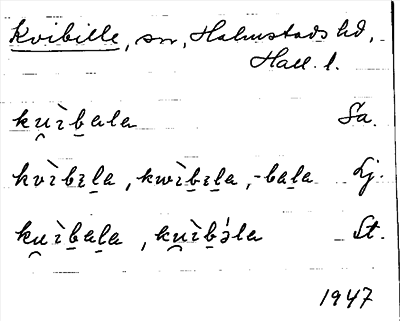 Kvibille, sn, Halmstads hd,
Hall. l.
ku̯ìb̲ala Sa.
kvìb̲ɛl̲a, kwìb̲ɛl̲a, -bal̲a Lj.
ku̯ìb̲al̲a, ku̯ìb̲ə́la St.
1947